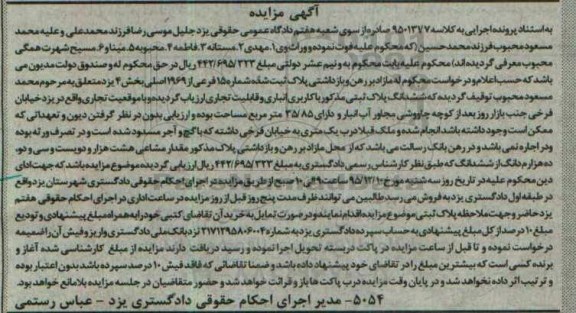 آگهی مزایده
به استناد پرونده اجرایی به کلاسه ۹۵۰۱۳۷۷ صادره از سوی شعبه هفتم دادگاه عمومی حقوقی یزد جلیل موسی رضا فرزند محمدعلی و علیه محمد
مسعود محبوب فرزند محمدحسین (که محکوم علیه فوت نموده و وراث وی ۱. مهدی ۲. مستانه ۳. فاطمه ۴. محبوبه ۵. مینا و ۶. مسیح شهرت همگی
محبوب معرفی گردیده اند) محکوم علیه بابت محکوم به و نیم عشر دولتی مبلغ ۴۴۲/۶۹۵/۳۲۳ ریال در حق محکوم له و صندوق دولت مدیون می
باشد که حسب اعلام و درخواست محکوم له مازاد بر رهن و بازداشتی پلاک ثبت شده شماره ۱۵ فرعی از ۱۹۶۹ اصلی بخش ۴ یزد متعلق به مرحوم محمد
مسعود محبوب توقیف گردیده که ششدانگ پلاک ثبتی مذکور با کاربری انباری و قابلیت تجاری ارزیاب گردیده و با موقعیت تجاری واقع در یزد خیابان
فرخی جنب بازار روز بعد از کوچه چاووشی مجاور آب انبار و دارای ۳۵/۸۵ متر مربع مساحت بوده و ارزیابی بدون در نظر گرفتن دیون و تعهداتی که
ممکن است وجود داشته باشد انجام شده و ملک فیلا درب یک متری به خیابان فرخی داشته که با گچ و آجر مسدود شده است و در تصرف ورثه بوده
و در اجاره نمی باشد و در رهن بانک رسالت می باشد که از محل مازاد بر رهن و بازداشتی پلاک مذکور مقدار مشاعی هشت هزار و دویست و سی و دو،
ده هزارم دانگ از ششدانگ که طبق نظر کارشناس رسمی دادگستری به مبلغ ۴۴۲/۶۹۵/۳۲۳ ریال ارزیابی گردیده موضوع مزایده باشد که جهت ادای
دین محکوم علیه در تاریخ روز سه شنبه مورخ ۹۵/۱۲/۱۰ ساعت ۹ الی ۱۰ صبح از طریق مزایده در اجرای احکام حقوقی دادگستری شهرستان یزد واقع
در طبقه اول دادگستری یزد به فروش می رسد طالبین می توانند ظرف مدت پنج روز قبل از روز مزایده در ساعت اداری در اجرای احکام حقوقی هفتم
یزد حاضر و جهت ملاحظه پلاک ثبتی موضوع مزایده اقدام نمایند و در صورت تمایل به خرید آن تقاضای کتبی خود را به همراه مبلغ پیشنهادی و تودیع
مبلغ ۱۰ درصد از کل مبلغ پیشنهادی به حساب سپرده دادگستری یزد به شماره نزد بانک ملی دادگستری واریز و فیش آن را ضمیمه
درخواست نموده و تا قبل از ساعت مزایده در پاکت دربسته تحویل اجرا نموده و رسید دریافت دارند مزایده از مبلغ کارشناسی شده آغاز و
برنده کسی است که بیشترین مبلغ را در تقاضای خود پیشنهاد داده باشد و ضمنا تقاضائی که فاقد فیش ۱۰ درصد سپرده باشد بدون اعتبار بوده
و ترتیب اثر داده نخواهد شد و در پایان وقت مزایده درب پاکت ها باز و قرائت خواهد شد و حضور متقاضیان در جلسه مزایده بلامانع خواهد بود.
۵۰۵۴- مدیر اجرای احکام حقوقی دادگستری یزد - عباس رستمی